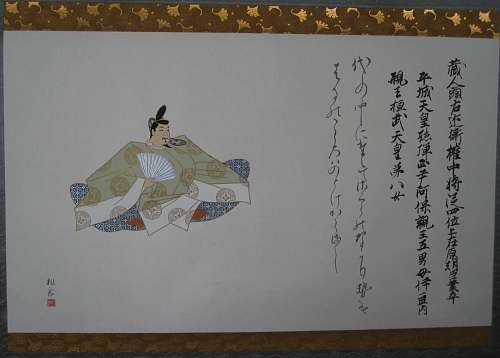 蔵人頭右近衛権中将従四位上在原朝臣業平
平城天皇孫弾正尹阿保親王五男母伊豆内
親王桓武天皇第八女
世の中にたえてさくらのなかりせは
はるのこゝろはのとけからまし